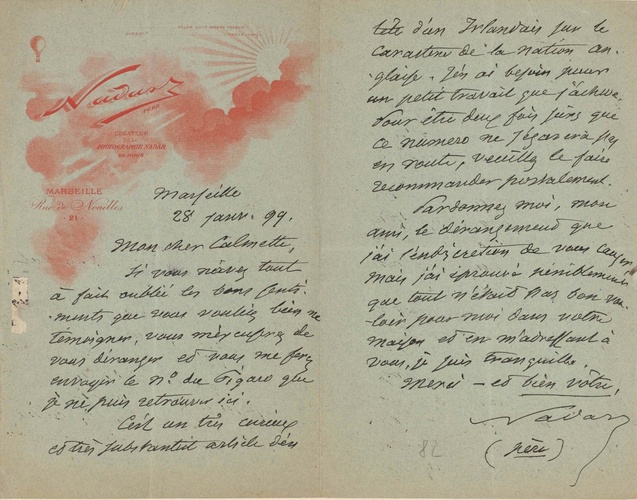 Nadar
PÈRE
CRÉATEUR
DE LA
PHOTOGRAPHIE NADAR
DE PARIS
MARSEILLE
Rue de Noailles
21
Marseille
28 janv. 99.
Mon cher Calmette,
Si vous n'avez tout
à fait oublié les bons senti-
ments que vous vouliez bien me
témoigner, vous m'excuserez de
vous déranger et vous me ferez
envoyer le n° du Figaro que
je ne puis retrouver ici.
C'est un très curieux
et très substantiel article d'en
tête d'un Irlandais sur le
caractère de la nation an-
glaise. J'en ai besoin pour
un petit travail que j'achève.
Pour être deux fois sûrs que
ce numéro ne s'égarera pas
en route, veuillez le faire
recommander postalement.
Pardonnez moi, mon
ami, le dérangement que
j'ai l'indiscrétion de vous causer
mais j'ai éprouvé péniblement
que tout n'était pas bon vou-
loir pour moi dans votre
maison et en m'adressant à
vous, je suis tranquille.
Merci – et bien vôtre,
Nadar
(père)
82